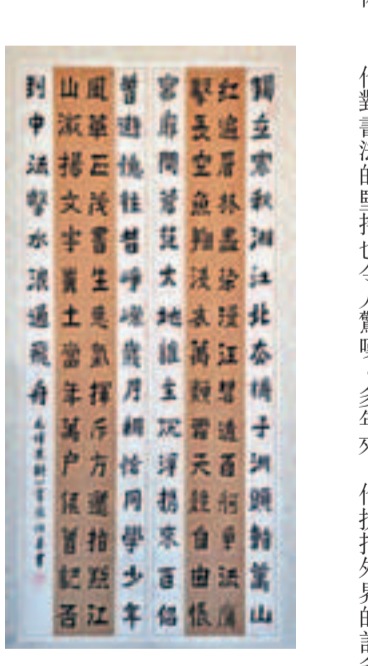 對書法的堅持也令人驚嘆，多年來，他抗拒外界的
獨立寒秋湘江北去橘子洲頭看萬山
紅遍層林盡染漫江碧透百舸爭流鷹
擊長空魚翔淺底萬類霜天競自由悵
寥廓問蒼茫大地誰主沉浮携來百侣
曾遊憶往昔崢嶸歲月稠恰同學少年
風華正茂書生意氣揮斥方遒指點江
山激揚文字糞土當年萬户侯曾記否
到中流擊水浪遏飛舟